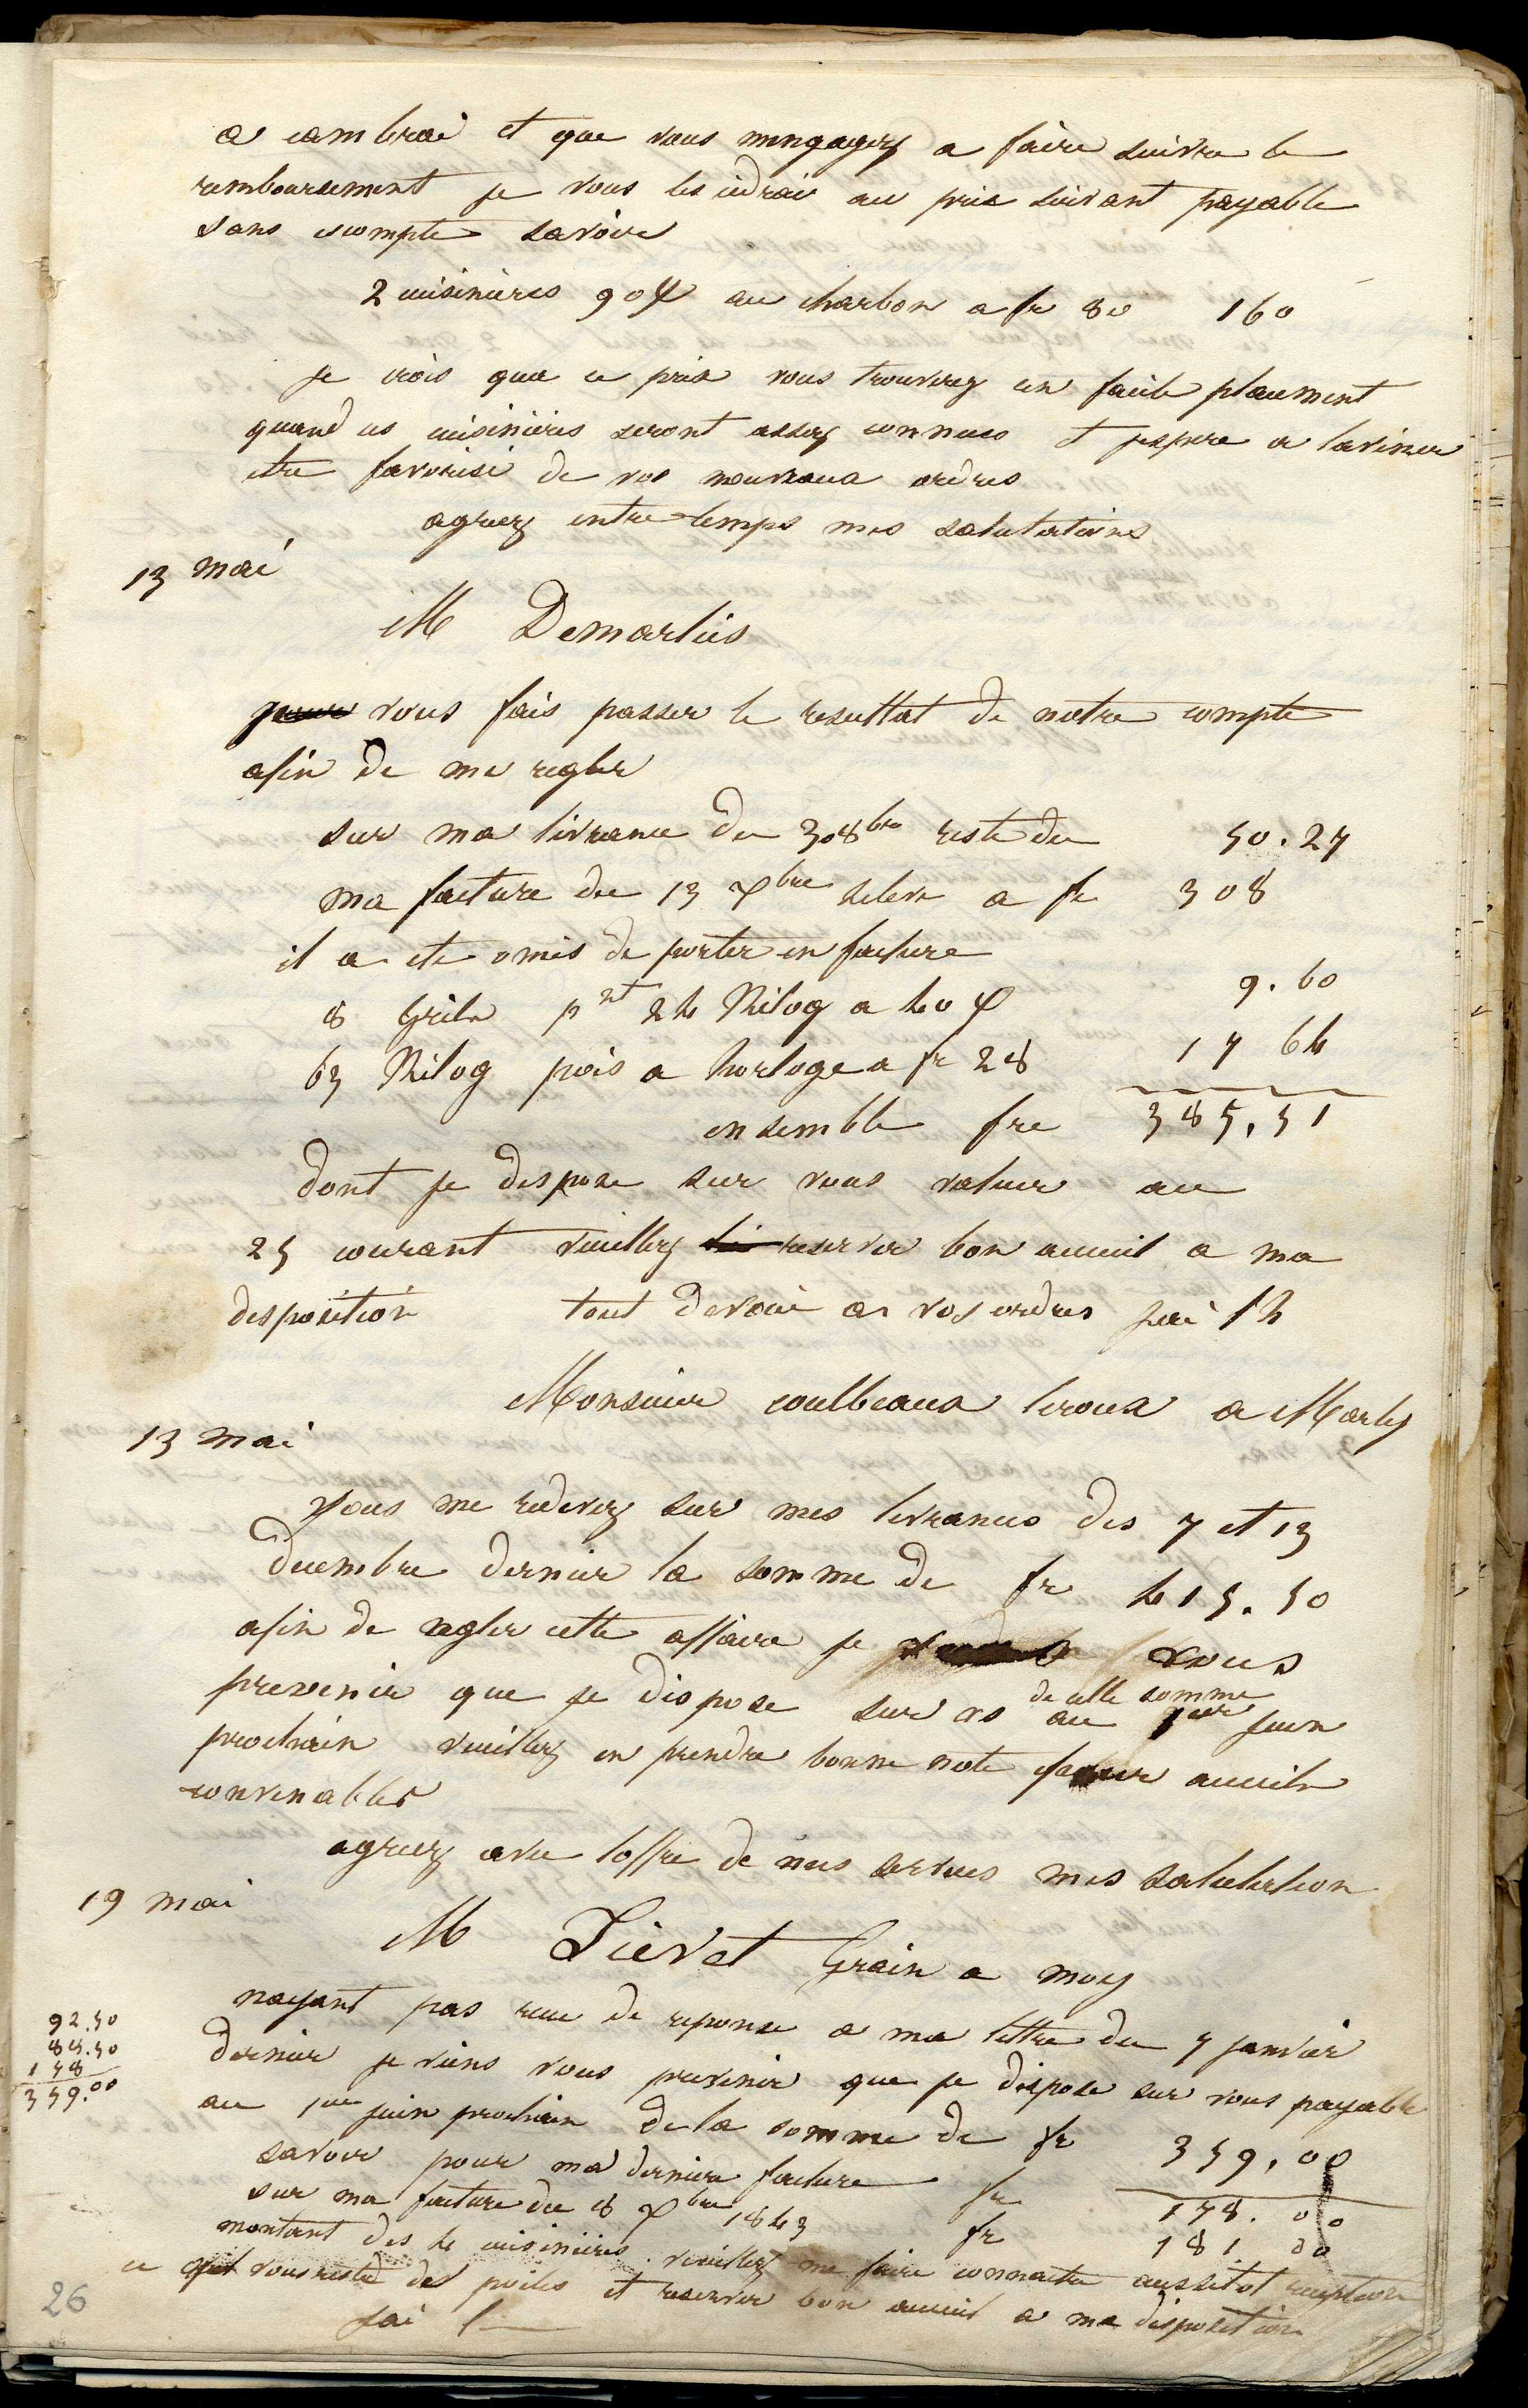 a cambrai et que vous mengagez a faire suivre le
remboursement je vous les cedrai au prix suivant payable
sans escompte savoir
2 cuisinieres 90 au charbon a fr 80 160
je crois que ce prix vous trouverez un facile placement
quand ces cuisinieres seront assez connues et jespere a lavenir
etre favorisé de vos nouveaux ordres
agreez entre temps mes salutations
13 mai
M Demarlies
vous fais passer le resultat de notre compte
afin de me regler
sur ma livrance du 30 8bre reste du 50.27
ma facture du 13 Xbre seleve a fr 308
il a ete omis de porter en facture
8 Grile pnt 24 Kilog a 40 9.60
63 Kilog pois a horloge a fr 28 17 64
ensemble fre 385,51
dont je despose sur vous valeur au
25 courant veuillez reserver bon acceuil a ma
desposition tout devoué a vos ordres jai lh
Monsieur coulbeaux leroux a Marly
13 mai
Vous me redevez sur mes livrances des 7 et 13
decembre dernier la somme de fr 415.50
afin de regler cette affaire je vous
prevenir que je dispose sur vs au 1er juin
de cette somme
prochain veuillez en prendre bonne note acceuile
convenables
agreez avec loffre de mes services mes salutation
19 mai
M Lievet Grain a moy
nayant pas recu de reponse a ma lettre du 7 janvier
dernier je viens vous prevenir que je dispose sur vous payable
au 1er juin prochain de la somme de fr 359,00
savoir pour ma derniere facture fr 178.00
sur ma facture du 8 Xbre 1843 fr 181 00
montant des 4 cuisinieres. veuillez me faire connaitre aussitot reception
ce quil vous reste des poiles et reserver bon acceuil a ma disposition
jai l
92.50
88.50
178
359.00
26